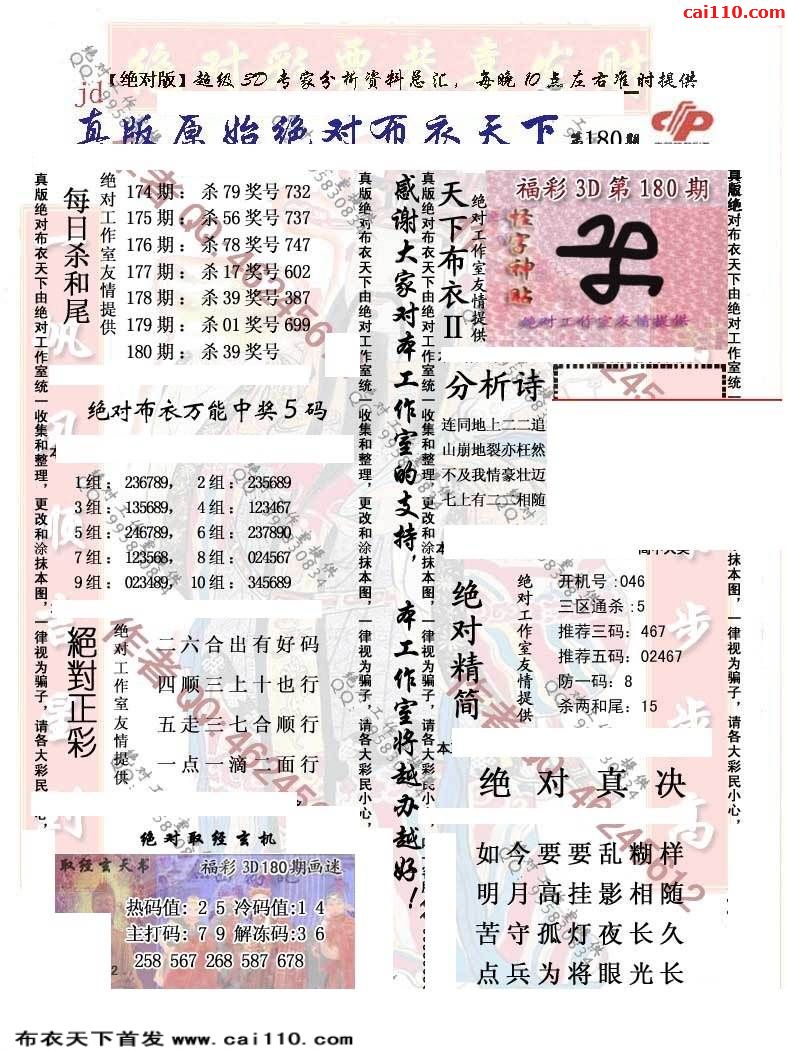 cai110.com
【绝对版】超级3D专家分析资料总汇，每晚10点左右准时提供
jd
真版原始绝对布衣天下 第180期
真版绝对布衣天下由绝对工作室统一收集和整理，更改和涂抹本图，一律视为骗子，请各大彩民小心，
每日杀和尾
绝对工作室友情提供
174期：杀79奖号732
175期：杀56奖号737
176期：杀78奖号747
177期：杀17奖号602
178期：杀39奖号387
179期：杀01奖号699
180期：杀39奖号
绝对布衣万能中奖5码
1组：236789，2组：235689
3组：135689，4组：123467
5组：246789，6组：237890
7组：123568，8组：024567
9组：023489，10组：345689
絕對正彩
绝对工作室友情提供
二六合出有好码
四顺三上十也行
五走三七合顺行
一点一滴二面行
绝对取经玄机
取经玄天书 福彩3D180期画迷
热码值：2 5冷码值:1 4
主打码：7 9解冻码:3 6
258 567 268 587 678
2
真版绝对布衣天下由绝对工作室统一收集和整理，更改和涂抹本图，一律视为骗子，请各大彩民小心，
感谢大家对本工作室的支持，本工作室将越办越好！
真版绝对布衣天下由绝对工作室统一收集和整理，更改和涂抹本图，一律视为骗子，请各大彩民小心，
天下布衣II
绝对工作室友情提供
福彩3D第180期
怪字神贴
绝对工作室友情提供
分析诗
连同地上二二追
山崩地裂亦枉然
不及我情豪壮迈
七上有二二相随
绝对精简
绝对工作室友情提供
开机号:046
三区通杀:5
推荐三码：467
推荐五码：02467
防一码：8
杀两和尾：15
绝对真决
如今要要乱糊样
明月高挂影相随
苦守孤灯夜长久
点兵为将眼光长
真版绝对布衣天下由绝对工作室统一收集和整理，更改和涂抹本图，一律视为骗子，请各大彩民小心，
布衣天下首发 www.cai110.com